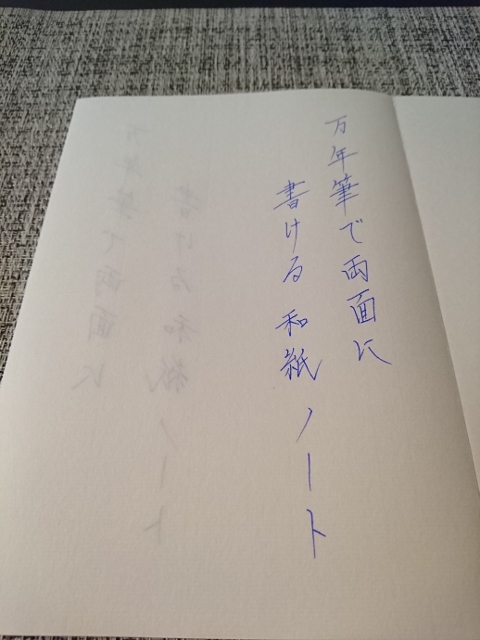 万年筆で両面に
書ける和紙ノート